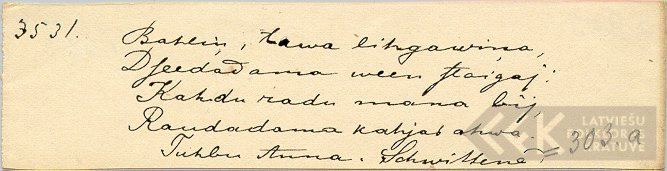 3531.
Bahliņ, tawa lihgawiņa,
Dseedadama ween staigaj:
Kahdu radu mana bij,
Raudadama kahjas ahwa.
Tuhbu Anna. Schwittenê.
303. a
LATVIEŠU
FOLKLORAS
KRĀTUVE